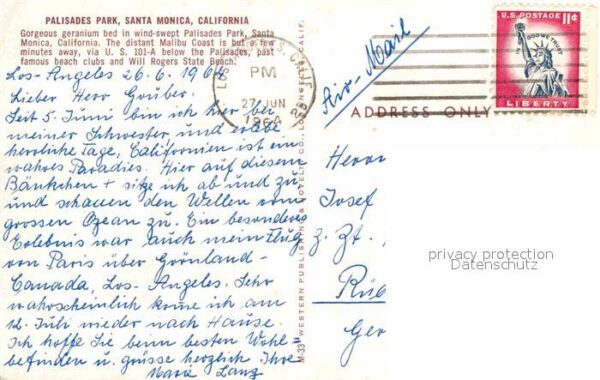 PALISADES PARK, SANTA MONICA, CALIFORNIA
Gorgeous geranium bed in wind-swept Palisades Park, Santa
Monica, California. The distant Malibu Coast is but a few
minutes away, via U. S. 101-A below the Palisades, past
famous beach clubs and Will Rogers State Beach.
Los-Angeles 26.6.1964
Lieber Herr Gruber.
Seit 5. Juni bin ich hier bei
meiner Schwester und erlebe
herrliche Tage, Californien ist ein
wahres Paradies. Hier auf diesem
Bänkchen sitze ich ab und zu
und schauen den Wellen vom
grossen Ozean zu. Ein besonderes
Erlebnis war auch mein Flug
von Paris über Grönland-
Canada, Los-Angeles. Sehr
wahrscheinlich komme ich am
12. Juli wieder nach Hause.
Ich hoffe Sie beim besten Wohl-
befinden u. grüsse herzlich Ihre
Maria Lanz
M-33 WESTERN PUBLISHING & NOVELTY CO., LOS ANGELES, CALIF.
LOS ANGELES, CALIF.
PM
27 JUN
1964
Air-Mail
U.S. POSTAGE 11¢
IN GOD WE TRUST
LIBERTY
ADDRESS ONLY
Herrn
Josef
z. Zt.
Rüd
Ger
privacy protection
Datenschutz